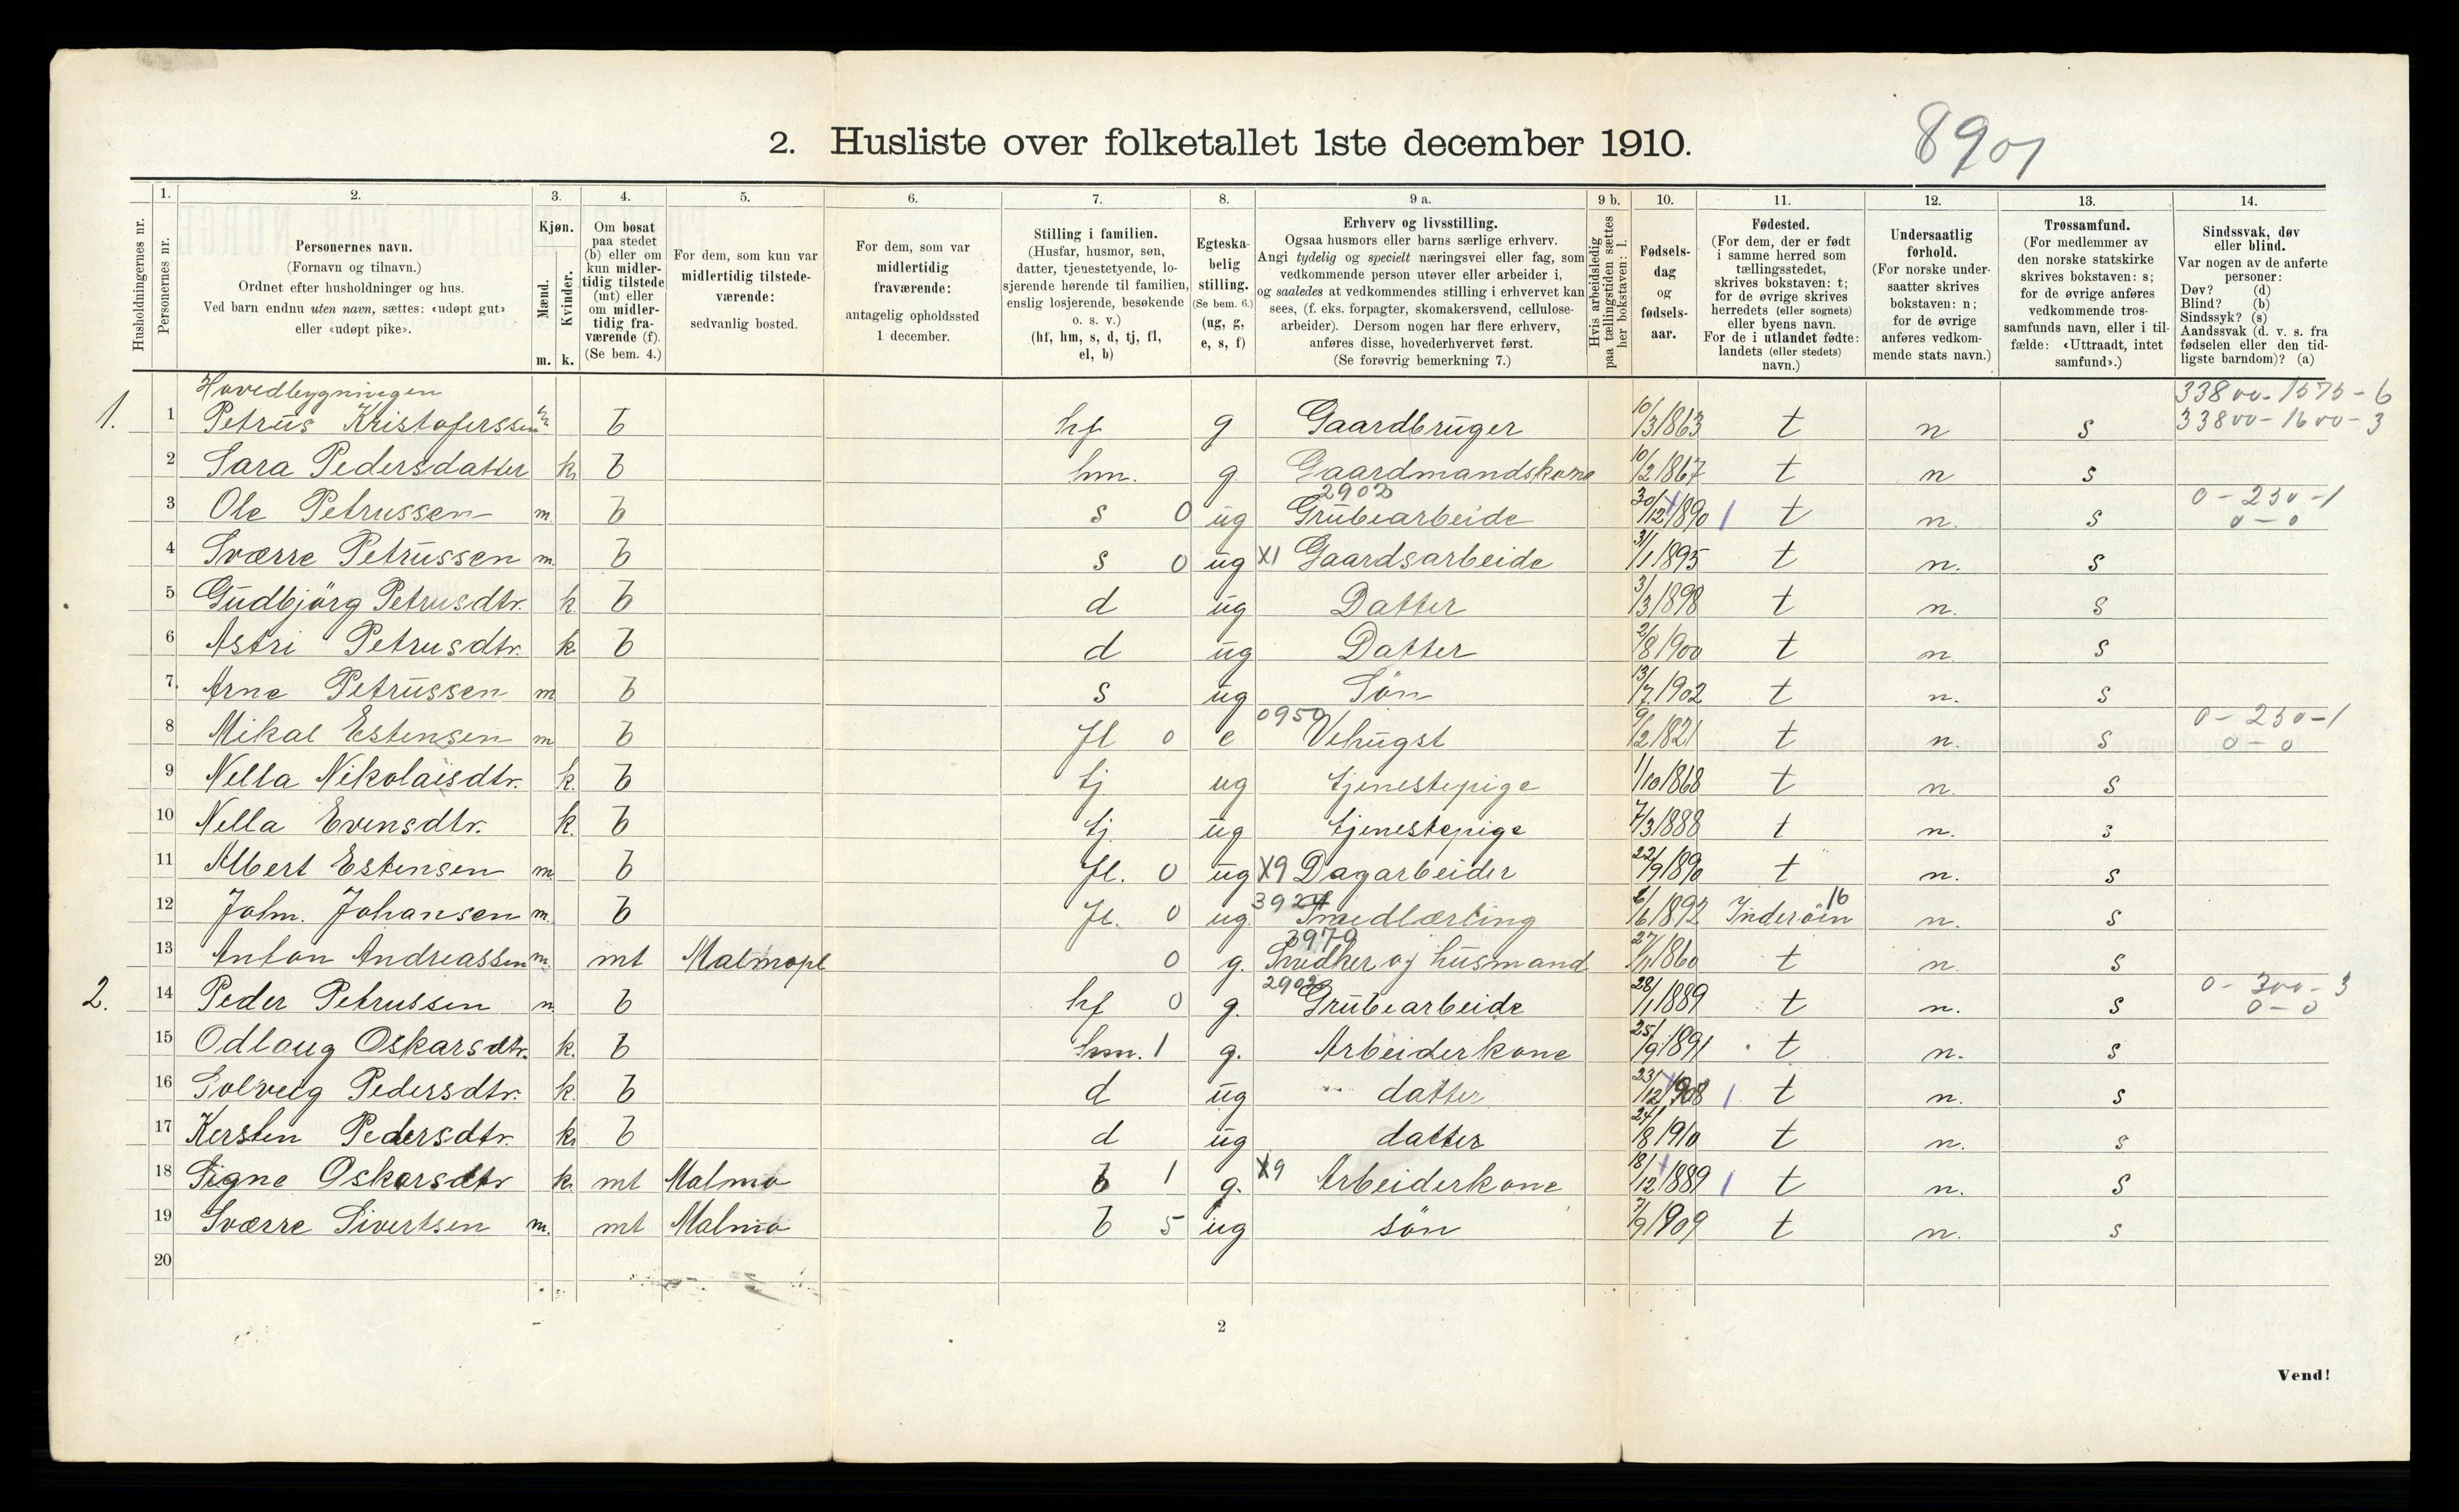 8901
2. Husliste over folketallet 1ste december 1910.
Husholdningernes nr.
1.
Personernes nr.
2.
Personernes navn.
(Fornavn og tilnavn.)
Ordnet efter husholdninger og hus.
Ved barn endnu uten navn, sættes: «udøpt gut»
eller «udøpt pike».
3.
Kjøn.
Mænd.
Kvinder.
m. k.
4.
Om bosat
paa stedet
(b) eller om
kun midler-
tidig tilstede
(mt) eller
om midler-
tidig fra-
værende (f).
(Se bem. 4.)
5.
For dem, som kun var
midlertidig tilstede-
værende:
sedvanlig bosted.
6.
For dem, som var
midlertidig
fraværende:
antagelig opholdssted
1 december.
7.
Stilling i familien.
(Husfar, husmor, søn,
datter, tjenestetyende, lo-
sjerende hørende til familien,
enslig losjerende, besøkende
o. s. v.)
(hf, hm, s, d, tj, fl,
el, b)
8.
Egteska-
belig
stilling.
(Se bem. 6.)
(ug, g,
e, s, f)
9 a.
Erhverv og livsstilling.
Ogsaa husmors eller barns særlige erhverv.
Angi tydelig og specielt næringsvei eller fag, som
vedkommende person utøver eller arbeider i,
og saaledes at vedkommendes stilling i erhvervet kan
sees, (f. eks. forpagter, skomakersvend, cellulose-
arbeider). Dersom nogen har flere erhverv,
anføres disse, hovederhvervet først.
(Se forøvrig bemerkning 7.)
9 b.
Hvis arbeidsledig
paa tællingstiden sættes
her bokstaven: l.
10.
Fødsels-
dag
og
fødsels-
aar.
11.
Fødested.
(For dem, der er født
i samme herred som
tællingsstedet,
skrives bokstaven: t;
for de øvrige skrives
herredets (eller sognets)
eller byens navn.
For de i utlandet fødte:
landets (eller stedets)
navn.)
12.
Undersaatlig
forhold.
(For norske under-
saatter skrives
bokstaven: n;
for de øvrige
anføres vedkom-
mende stats navn.)
13.
Trossamfund.
(For medlemmer av
den norske statskirke
skrives bokstaven: s;
for de øvrige anføres
vedkommende tros-
samfunds navn, eller i til-
fælde: «Uttraadt, intet
samfund».)
14.
Sindssvak, døv
eller blind.
Var nogen av de anførte
personer:
Døv? (d)
Blind? (b)
Sindssyk? (s)
Aandssvak (d. v. s. fra
fødselen eller den tid-
ligste barndom)? (a)
Hovedbygningen 33800-1575-6
1. 1 Petrus Kristoferssen m b hf g Gaardbruger 10/3 1863 t n s 33800-1600-3
2 Sara Pedersdatter k b hm. g Gaardmandskone 10/2 1867 t n s
2903 0-250-1
3 Ole Petrussen m. b s 0 ug Grubearbeide 30/12 1890 1 t n. s 0-0
4 Sværre Petrussen m. b s 0 ug X1 Gaardsarbeide 31/1 1895 t n. s
5 Gudbjörg Petrusdtr. k b d ug Datter 3/3 1898 t n. s
6 Astri Petrusdtr. k b d ug Datter 2/8 1900 t n. s
7. Arne Petrussen m b s ug Sön 13/7 1902 t n. s
0950 0-250-1
8 Mikal Estensen m b fl 0 e Vehugst 9/2 1821 t n. s 0-0
9 Nella Nikolaisdtr. k. b tj ug tjenestepige 1/10 1868 t n. s
10 Nella Evensdtr. k. b tj ug tjenestepige 7/3 1888 t n. s
11 Albert Estensen m b fl. 0 ug X9 Dagarbeider 22/9 1890 t n. s
3924 16
12 Johm. Johansen m. b fl. 0 ug. Smedlærling 6/6 1892 Inderöen n. s
3970
13 Anton Andreassen m. mt Malmopl 0 g. Snedker og husmand 27/1 1860 t n. s
2903 0-300-3
2. 14 Peder Petrussen m b hf 0 g. Grubearbeide 28/1 1889 t n. s 0-0
15 Odlaug Oskarsdtr. k. b hm. 1 g. Arbeiderkone 25/9 1891 t n. s
16 Solveig Pedersdtr. k. b d ug datter 23/12 1908 1 t n. s
17 Kersten Pedersdtr. k. b d ug datter 24/8 1910 t n. s
18 Signe Oskarsdtr k. mt Malmo b 1 g. X9 Arbeiderkone 18/12 1889 1 t n. s
19 Sværre Sivertsen m. mt Malmo b 5 ug sön 3/9 1909 t n. s
20
2
Vend!